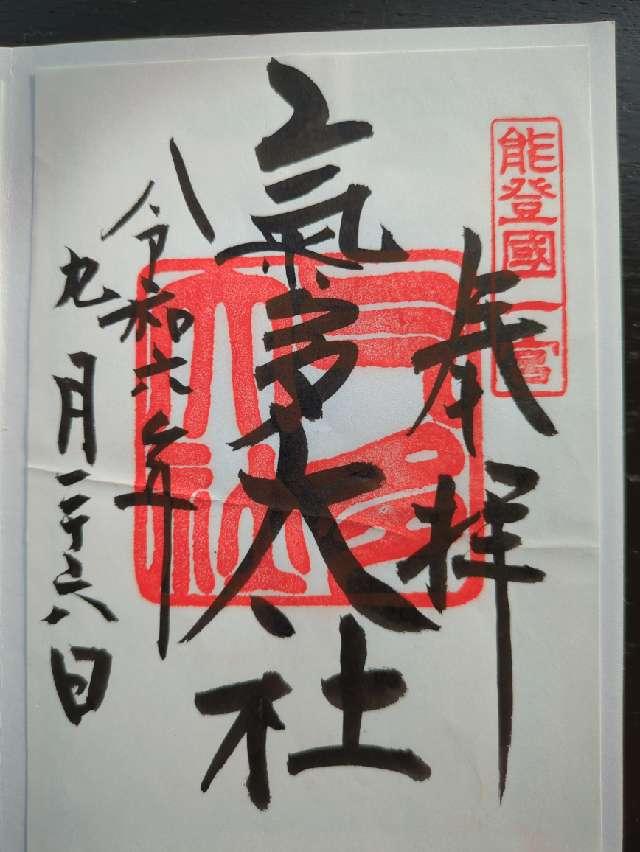 能登國一宮
奉拝
氣多大社
令和六年
九月二十六日